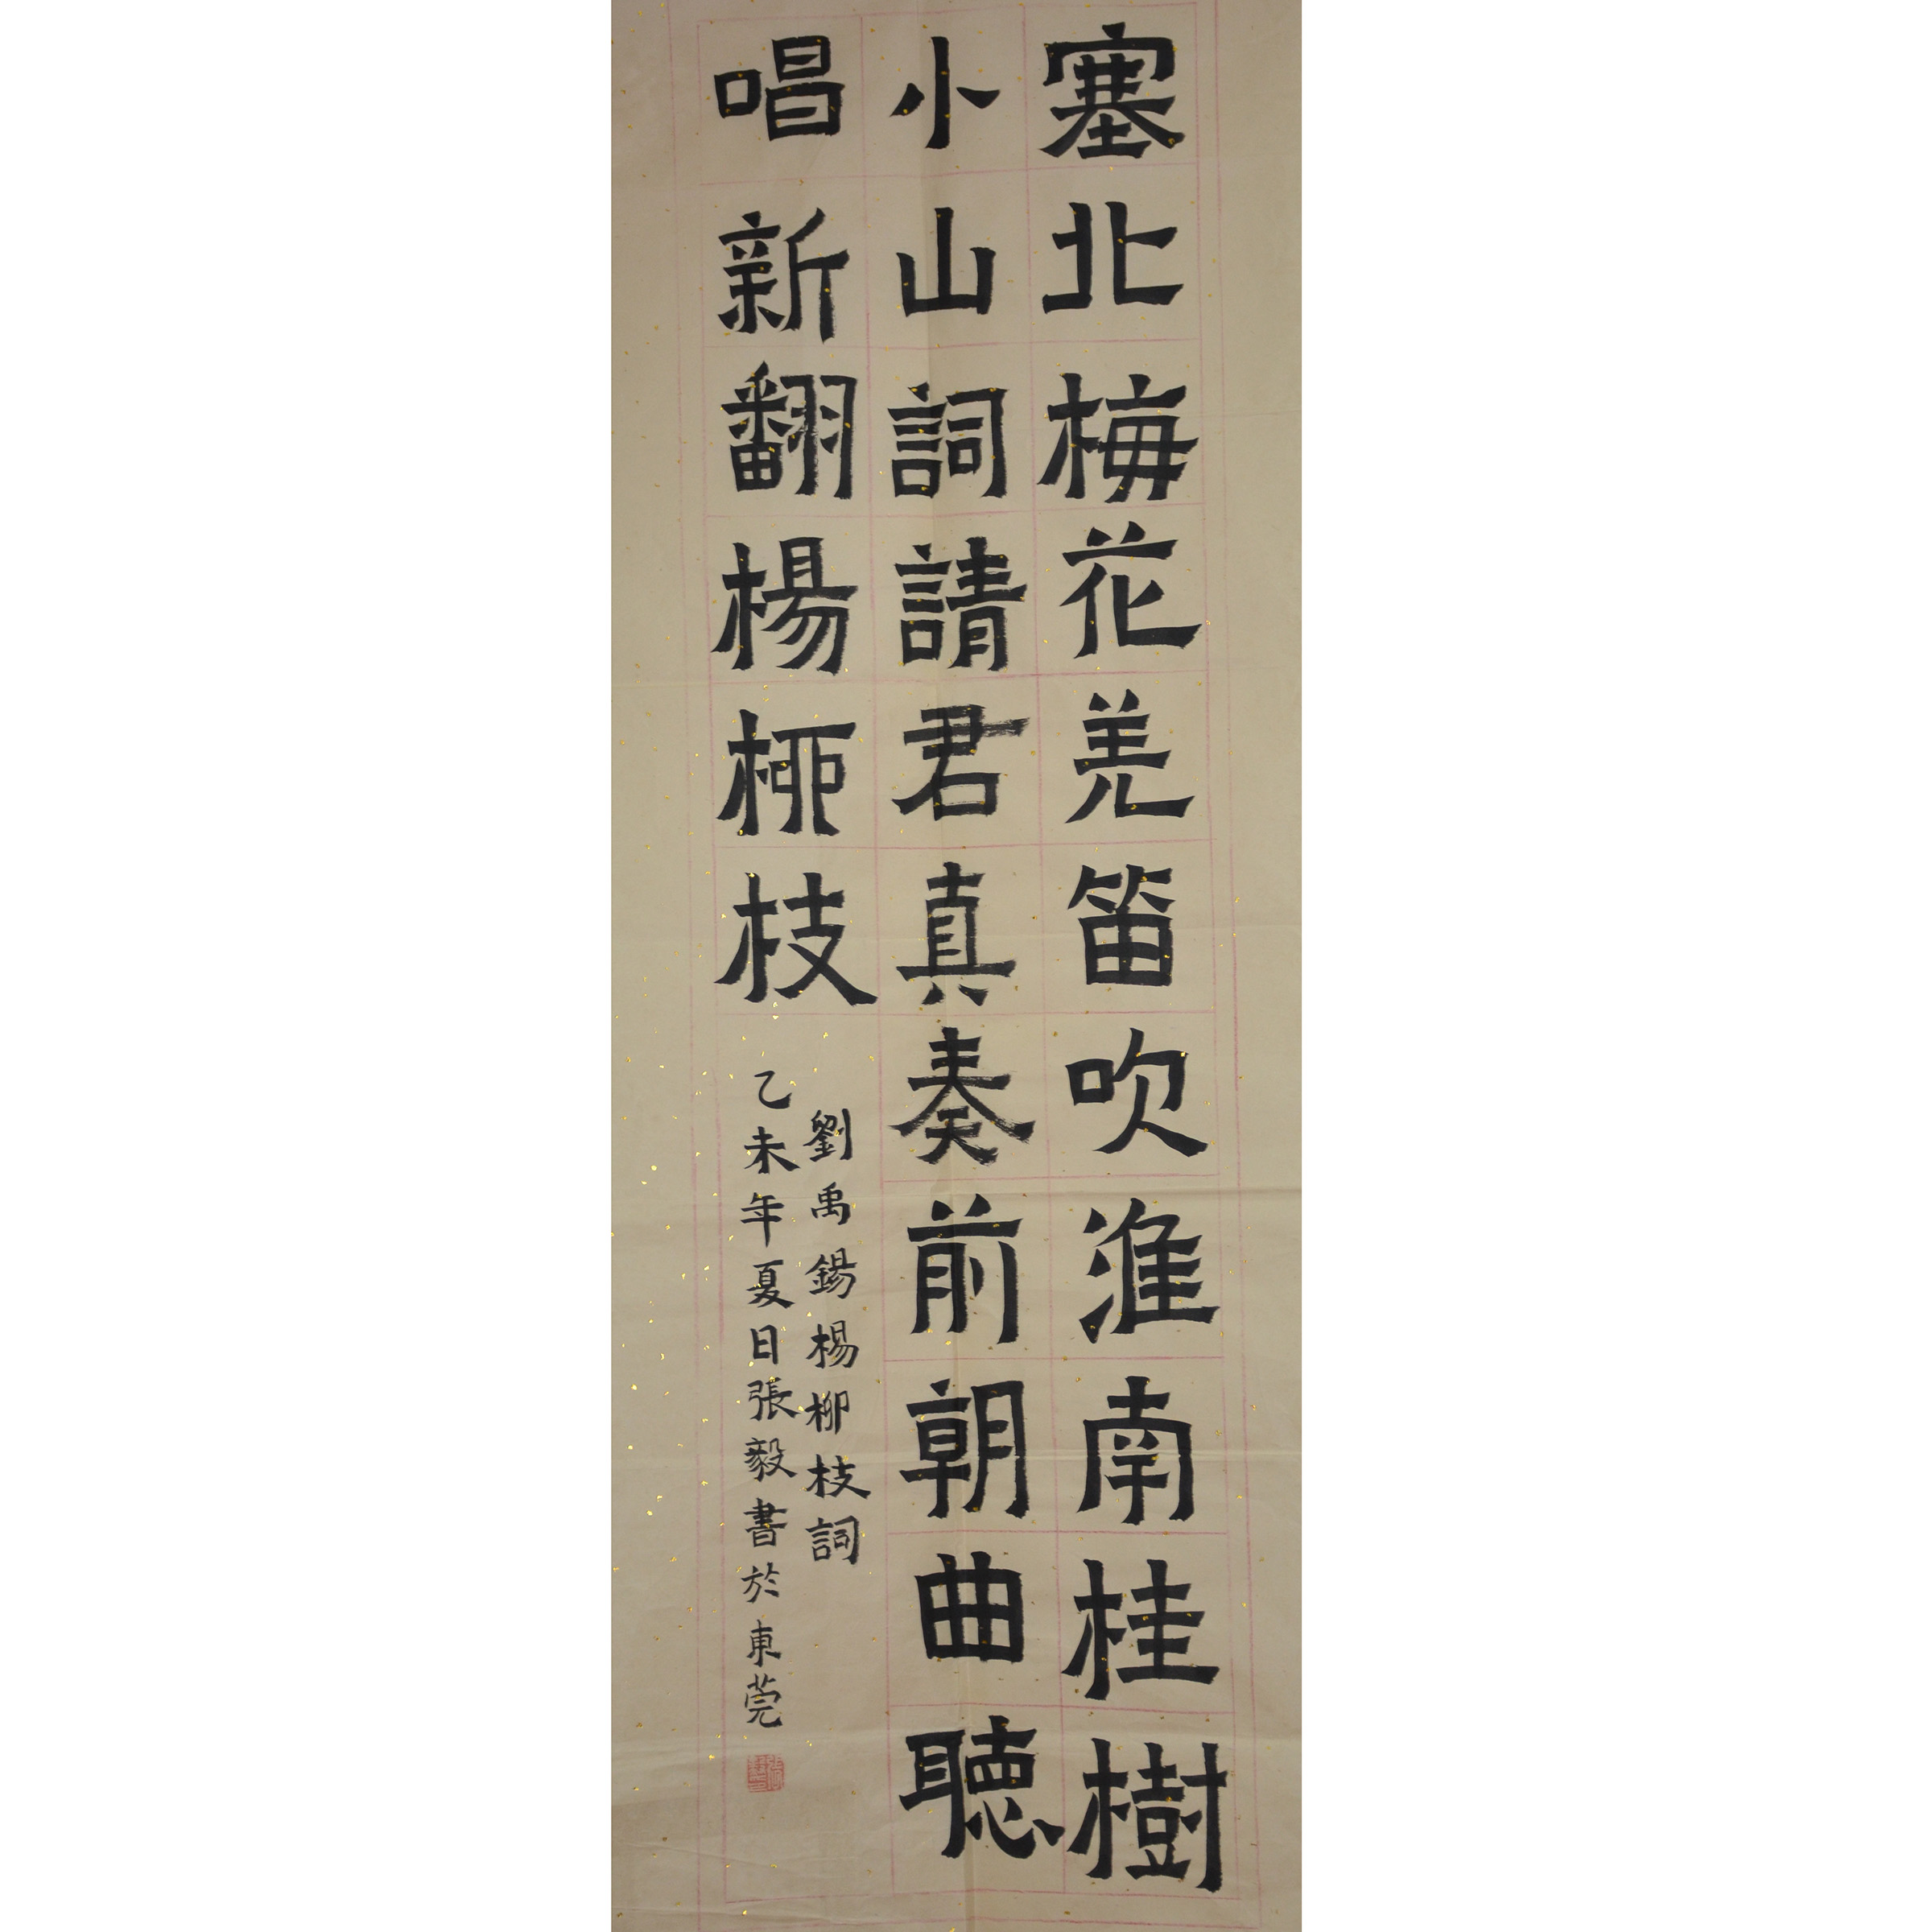 塞北梅花羌笛吹淮南桂樹
小山詞請君真奏前朝曲聽
唱新翻楊柳枝
劉禹錫楊柳枝詞
乙未年夏日張毅書於東莞